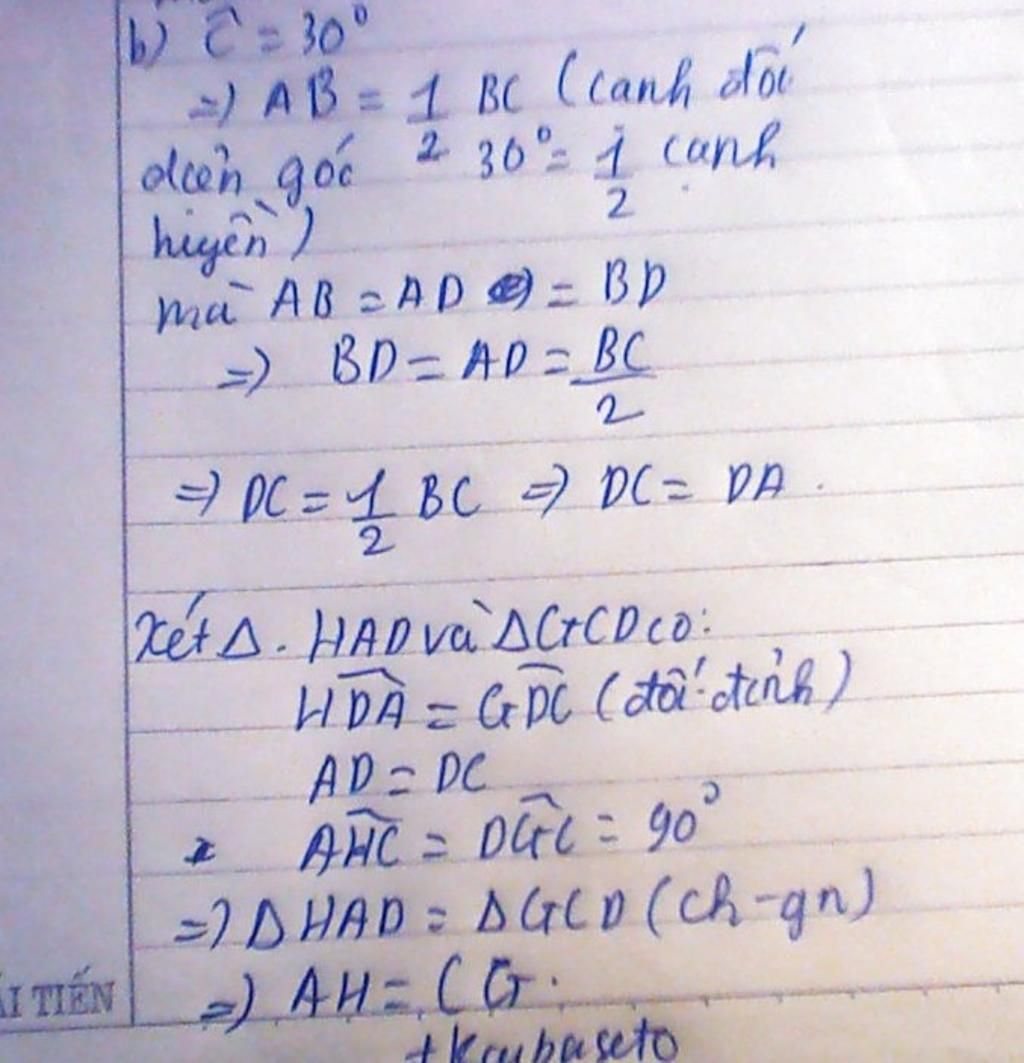 b) Ĉ = 30°
=) AB = 1/2 BC (cạnh đối
diện góc 30° = 1/2 cạnh
huyền)
mà AB = AD = BD
=) BD = AD = BC/2
=) DC = 1/2 BC =) DC = DA.
Xét Δ. HAD và ΔGCD có:
HDA = GDC (đối đỉnh)
AD = DC
AHC = DGC = 90°
=) Δ HAD = Δ GCD (ch-gn)
=) AH = CG.
ẢI TIẾN